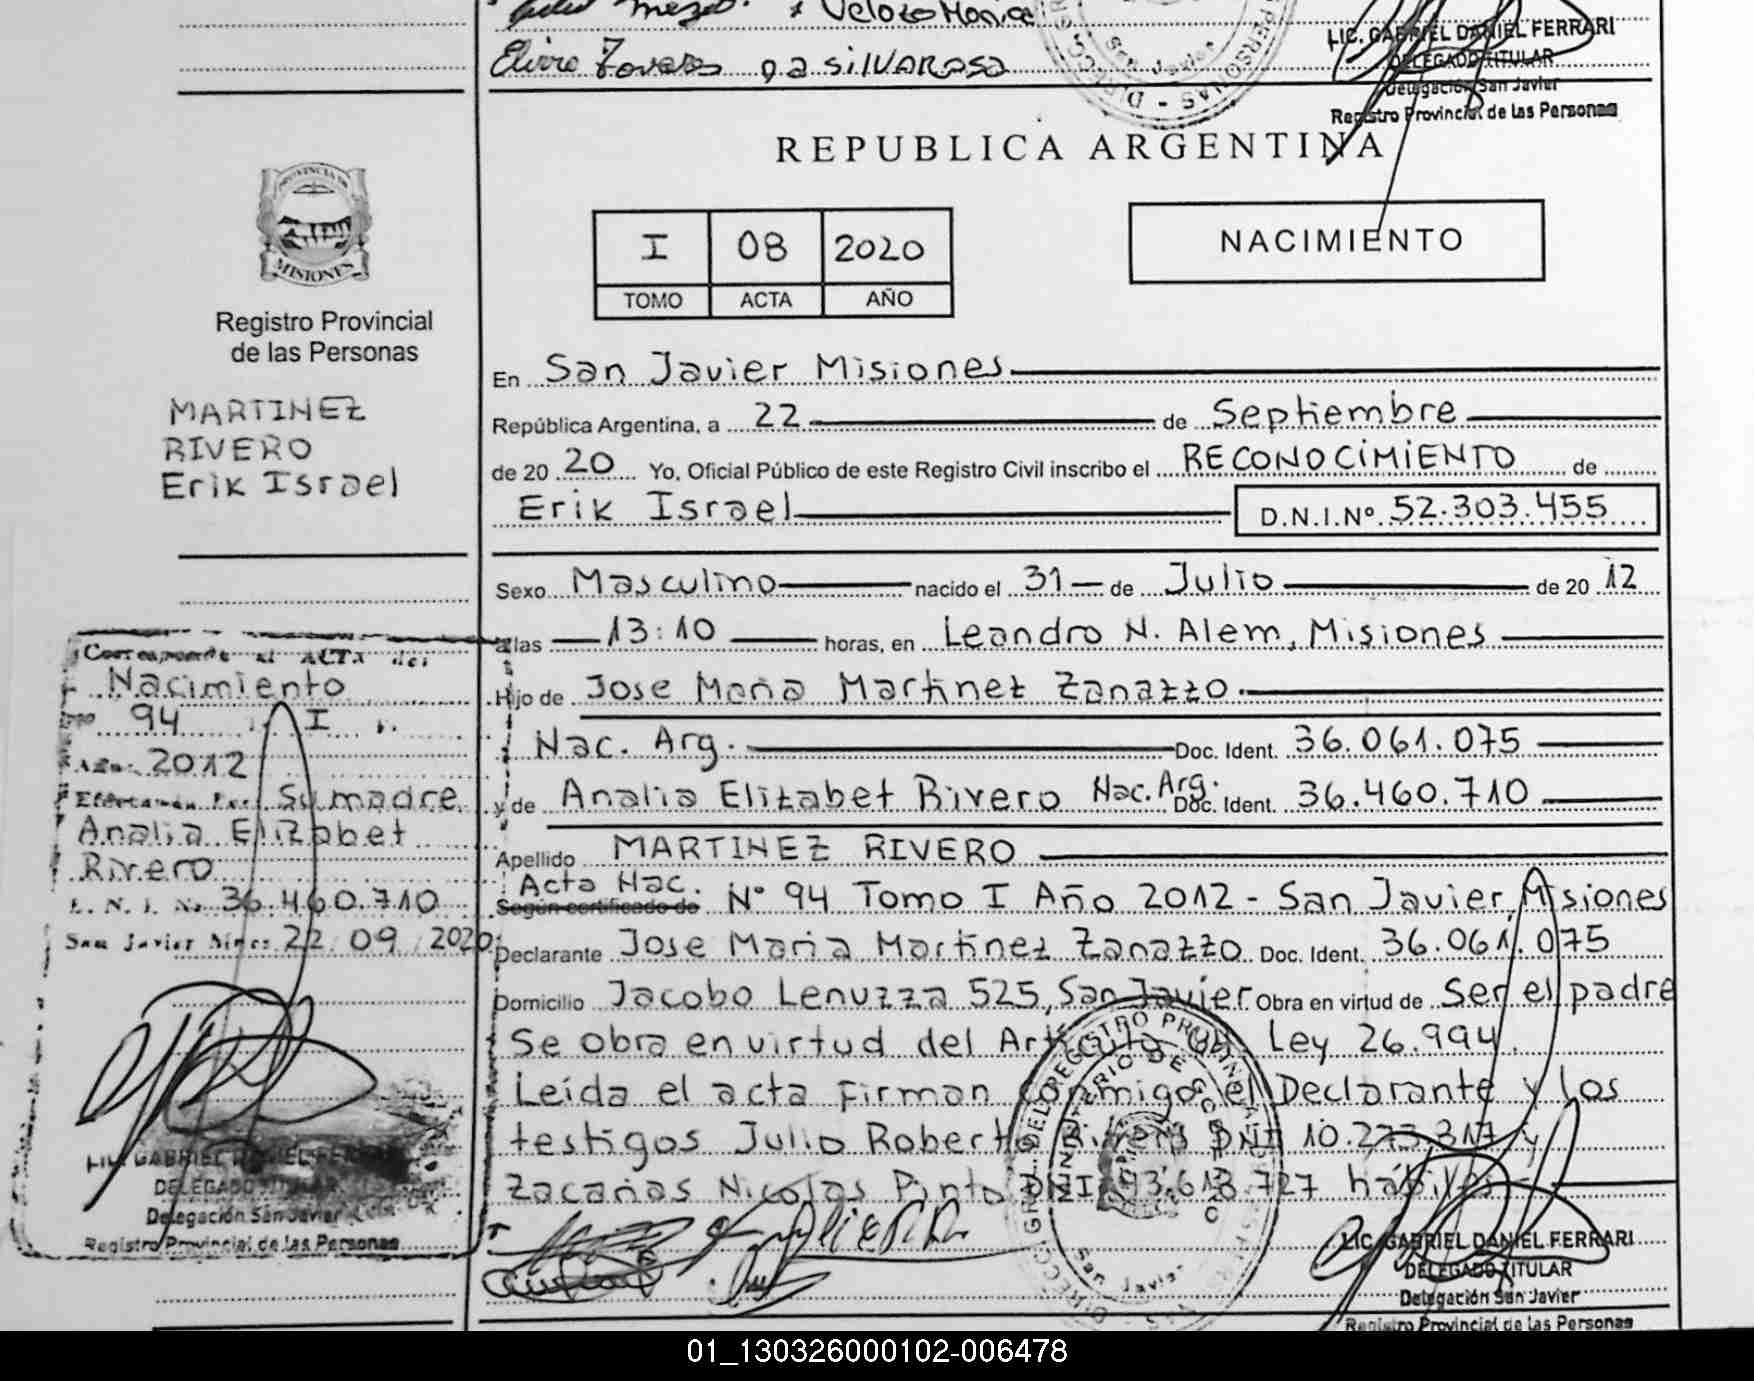 Veloso Monica
DA SILVA ROSA
LIC. GABRIEL DANIEL FERRARI
DELEGADO TITULAR
Delegación San Javier
Registro Provincial de las Personas
REPUBLICA ARGENTINA
PROVINCIA DE
MISIONES
Registro Provincial
de las Personas
I 08 2020
TOMO ACTA AÑO
NACIMIENTO
MARTINEZ
RIVERO
Erik Israel
En San Javier Misiones
República Argentina, a 22 de Septiembre
de 20 20 Yo, Oficial Público de este Registro Civil inscribo el RECONOCIMIENTO de
Erik Israel D.N.I.Nº 52.303.455
Sexo Masculino nacido el 31 de Julio de 20 12
a las 13:10 horas, en Leandro N. Alem, Misiones
Hijo de Jose Maria Martinez Zanazzo
Nac. Arg. Doc. Ident. 36.061.075
y de Analia Elizabet Rivero Nac. Arg. Doc. Ident. 36.460.710
Apellido MARTINEZ RIVERO
Acta Nac.
Según certificado de N° 94 Tomo I Año 2012 - San Javier, Misiones
Declarante Jose Maria Martinez Zanazzo Doc. Ident. 36.061.075
Domicilio Jacobo Lenuzza 525, San Javier Obra en virtud de Ser el padre
Se obra en virtud del Articulo Ley 26.994.
Leída el acta Firman conmigo el Declarante y los
testigos Julio Roberto DNI 10.273.317 y
Zacarias Nicolas Pinto DNI 93.613.727 hábiles
Corresponde al ACTA de:
Nacimiento
Nº 94 I
Año: 2012
Efectuada Por: Su madre
Analia Elizabet
Rivero
D. N. I. Nº 36.460.710
San Javier Mnes: 22/09/2020
LIC. GABRIEL DANIEL FERRARI
DELEGADO TITULAR
Delegación San Javier
Registro Provincial de las Personas
LIC. GABRIEL DANIEL FERRARI
DELEGADO TITULAR
Delegación San Javier
Registro Provincial de las Personas
01_130326000102-006478